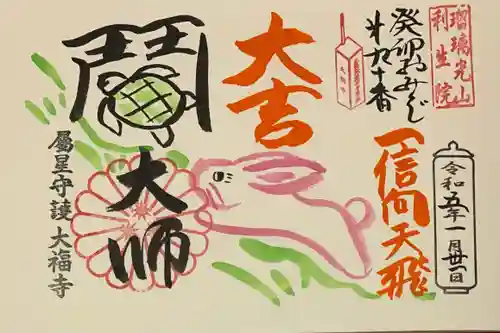 瑠璃光山
利生院
令和五年一月卅一日
癸卯おみくじ
第九十番
一信向天飛
大吉
大師
屬星守護 大福寺